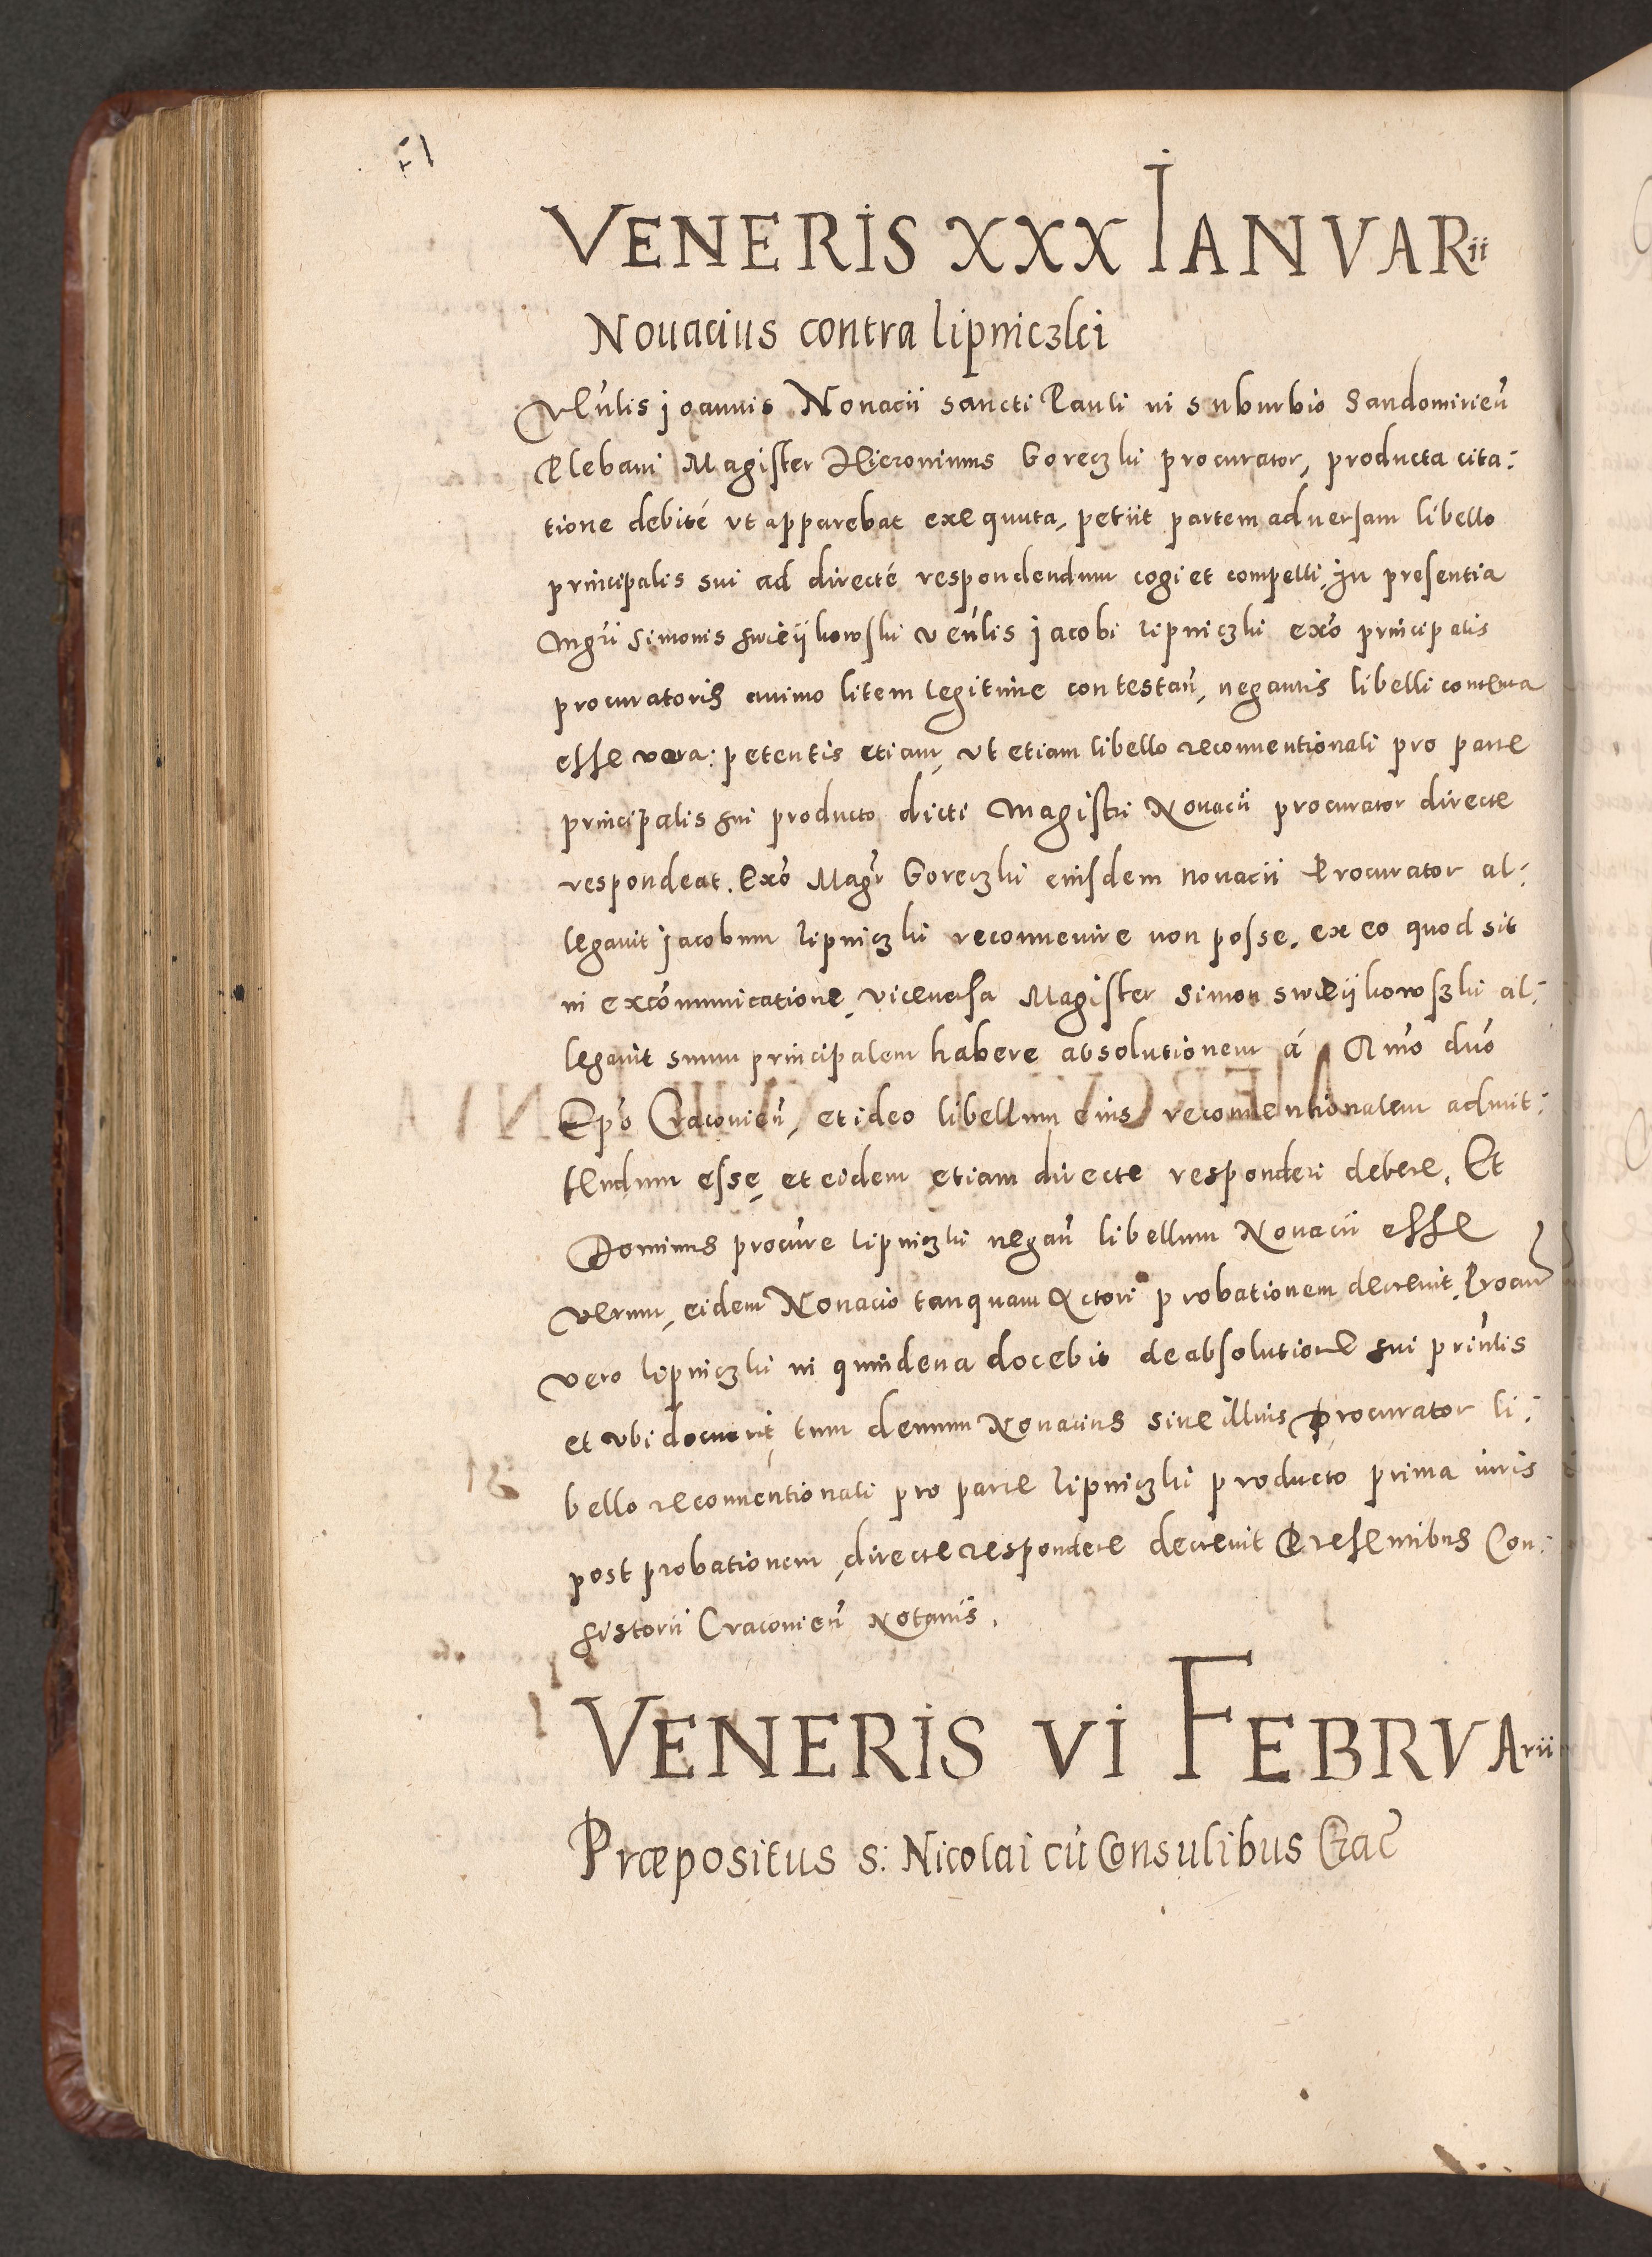 VENERIS XXX IANVARii
Nouacius contra lipniczki
Veñlis joannis Nouacii sancti Pauli in suburbio Sandomirieñ
Plebani Magister Hieronimus Goreczki procurator, producta cita:
tione debité vt apparebat exequuta, petiit partem aduersam libello
principalis sui ad directé respondendum cogi et compelli. In presentia
Mgri Simonis swieijkowski veñlis jacobi lipniczki exo principalis
procuratoris animo litem legitime contestañ, negantis libelli contenta
esse vera: petentis etiam, vt etiam libello reconuentionali pro parte
principalis sui producto dicti Magistri Nouacii procurator directe
respondeat. Exo Magr Goreczki eiusdem nouacii Procurator al:
legauit jacobum lipniczki reconuenire non posse, ex eo quod sit
in excommunicatione, viceuersa Magister Simon swieijkowszki al:
legauit suum principalem habere absolutionem á Rmo dno
Epo Cracouieñ, et ideo libellum eius reconuentionalem admit:
tendum esse, et eidem etiam directe responderi debere. Et
Dominus procure lipniczki negañ libellum Nouacii esse
verum, eidem Nouacio tanquam Actori probationem decreuit. Procur
vero lipniczki in quindena docebit de absolutione sui prinlis
et vbi docuerit, tum demum Nouacius siue illius procurator li:
bello reconuentionali pro parte lipniczki producto prima iuris
post probationem, directe respondere decreuit Presentibus Con:
sistorii Cracouieñ Notariis.
VENERIS VI FEBRVArii
Præpositus s: Nicolai cũ Consulibus Crac